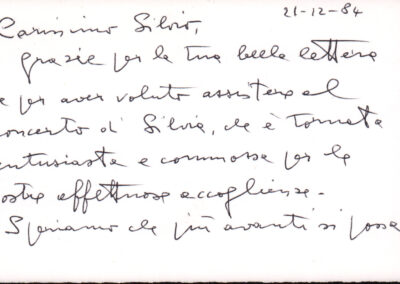 21-12-84
Carissimo Silvio,
grazie per la tua bella lettera
e per aver voluto assistere al
concerto di Silvia, che è tornata
entusiasta e commossa per le
vostre affettuose accoglienze.
Speriamo che più avanti si possa